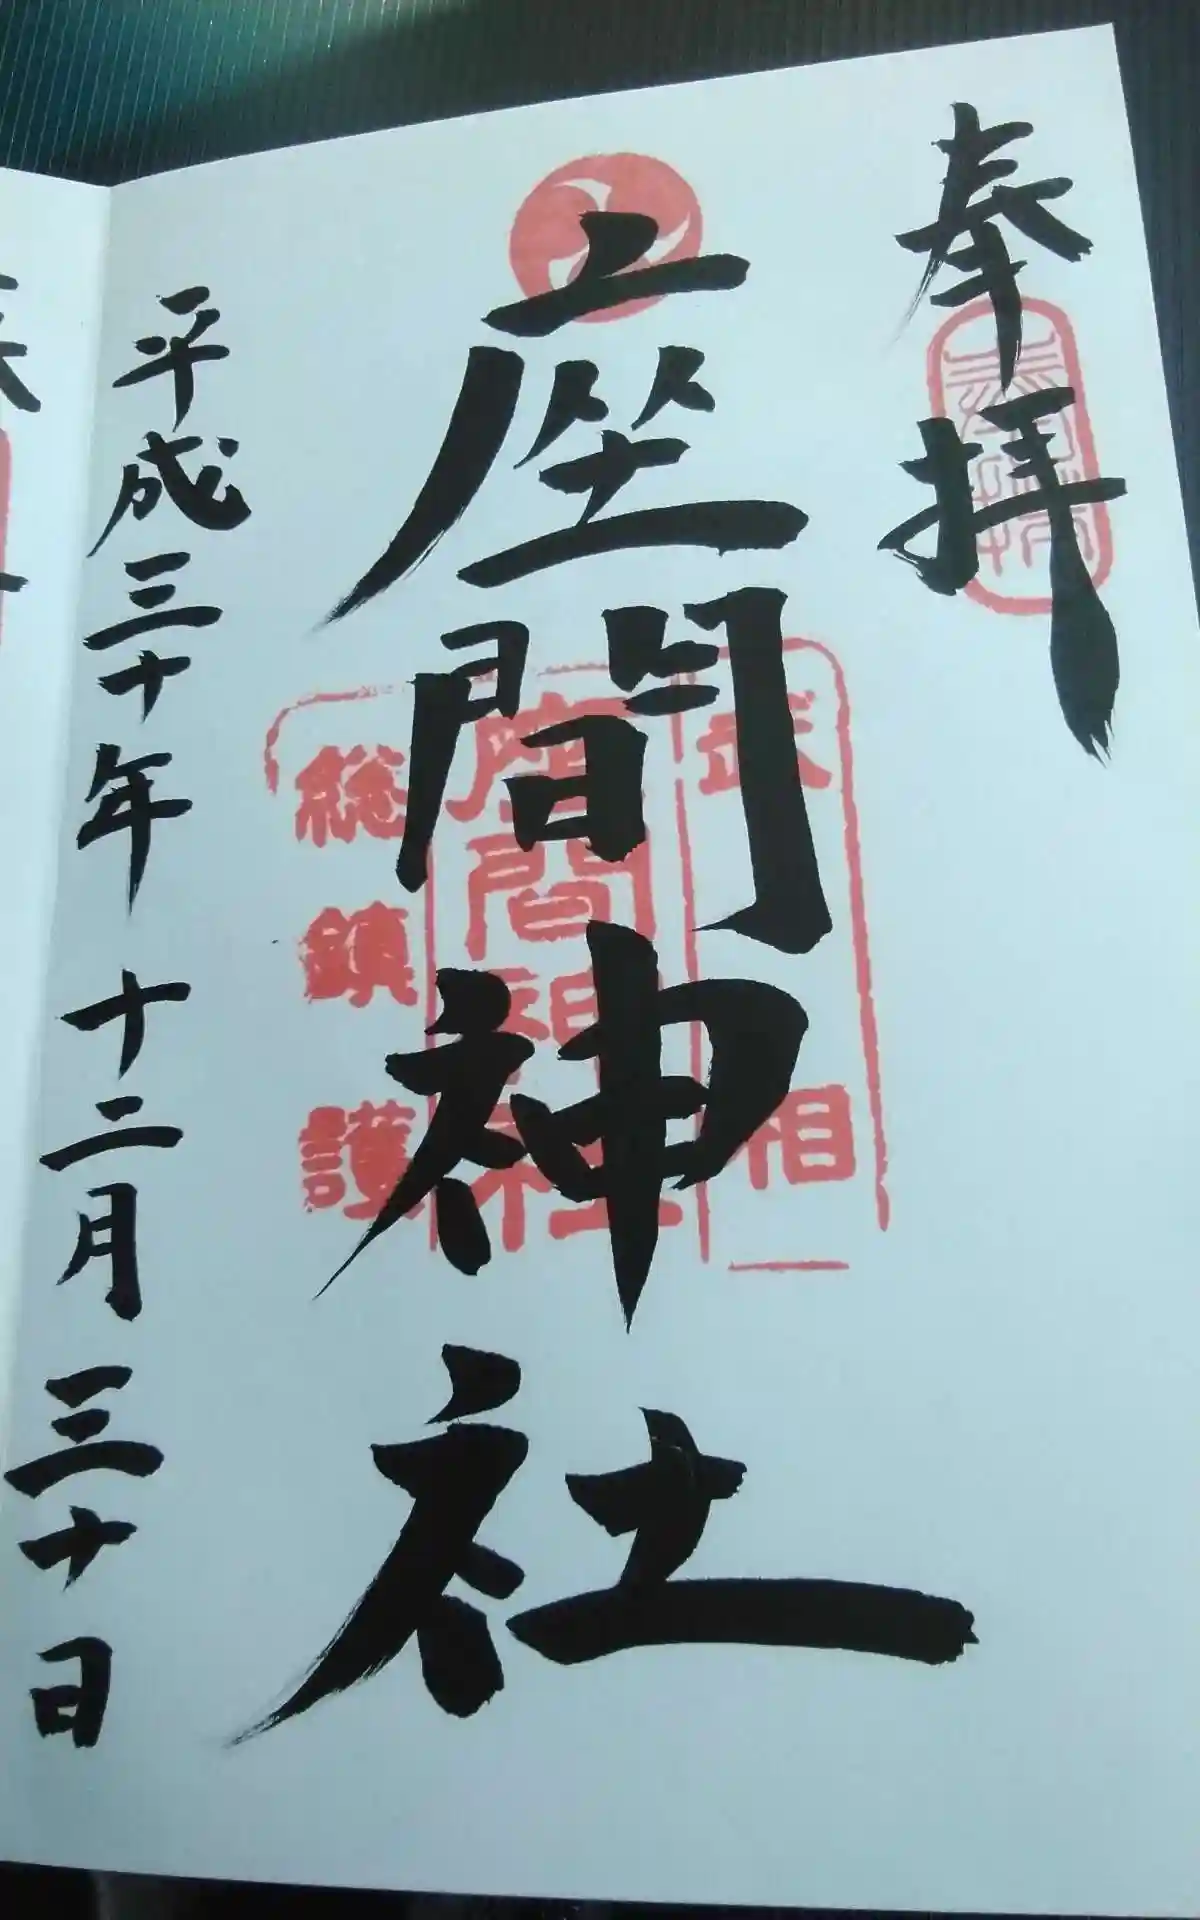 奉拝
武相
座間神社
座間神社
総鎮護
平成三十年 十二月 三十日